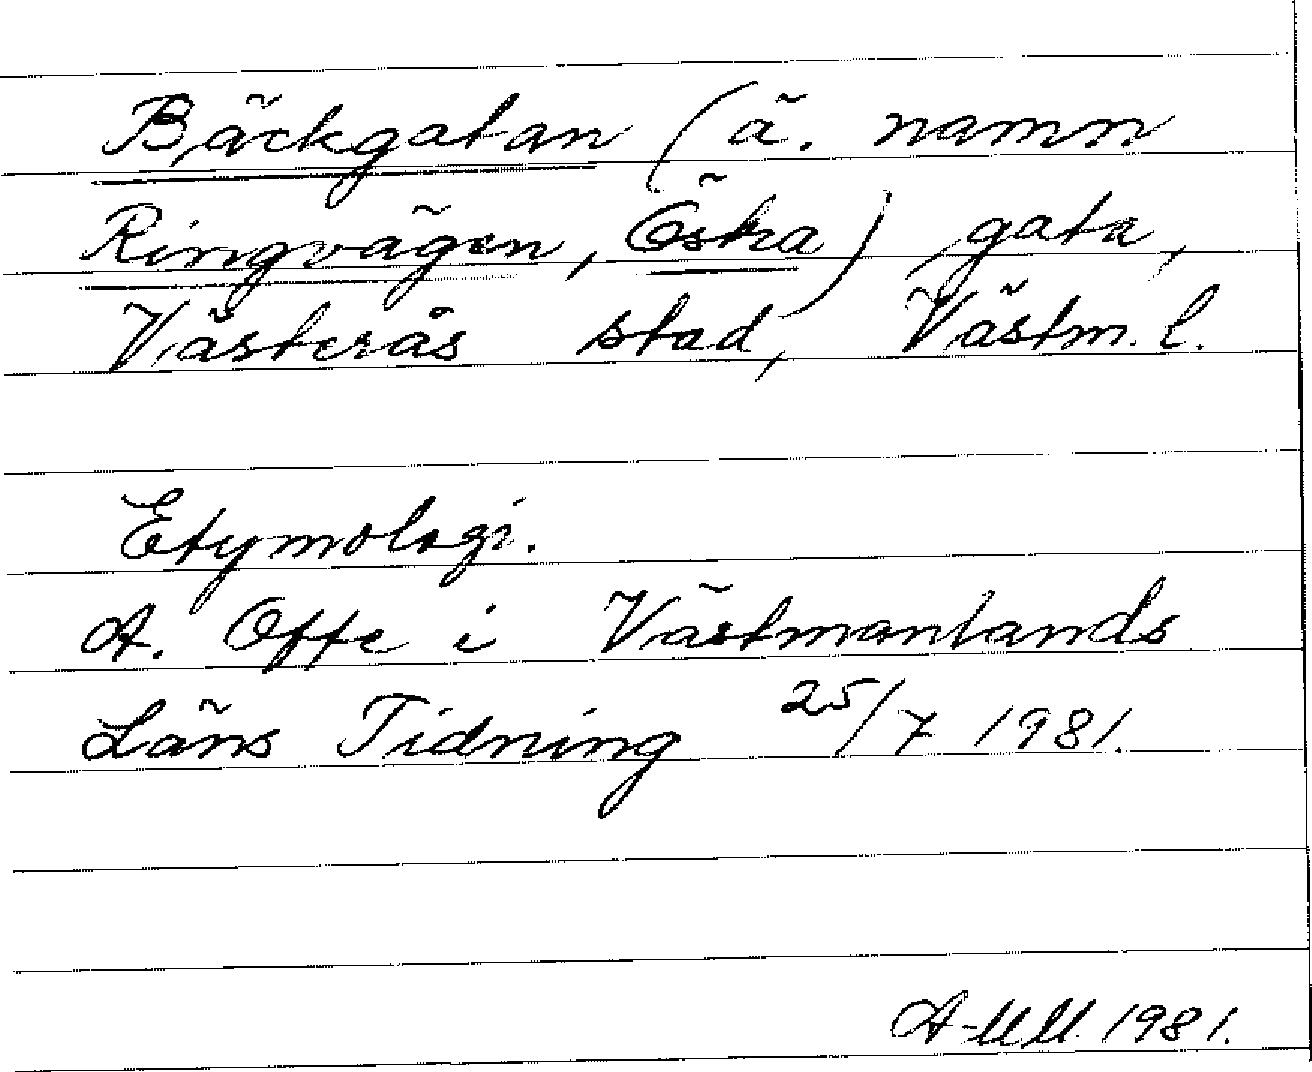 Bäckgatan (ä. namn
Ringvägen, Öska) gata,
Västerås stad, Västm. l.
Etymologi.
A. Offe i Västmanlands
Läns Tidning 25/7 1981.
A-MM. 1981.